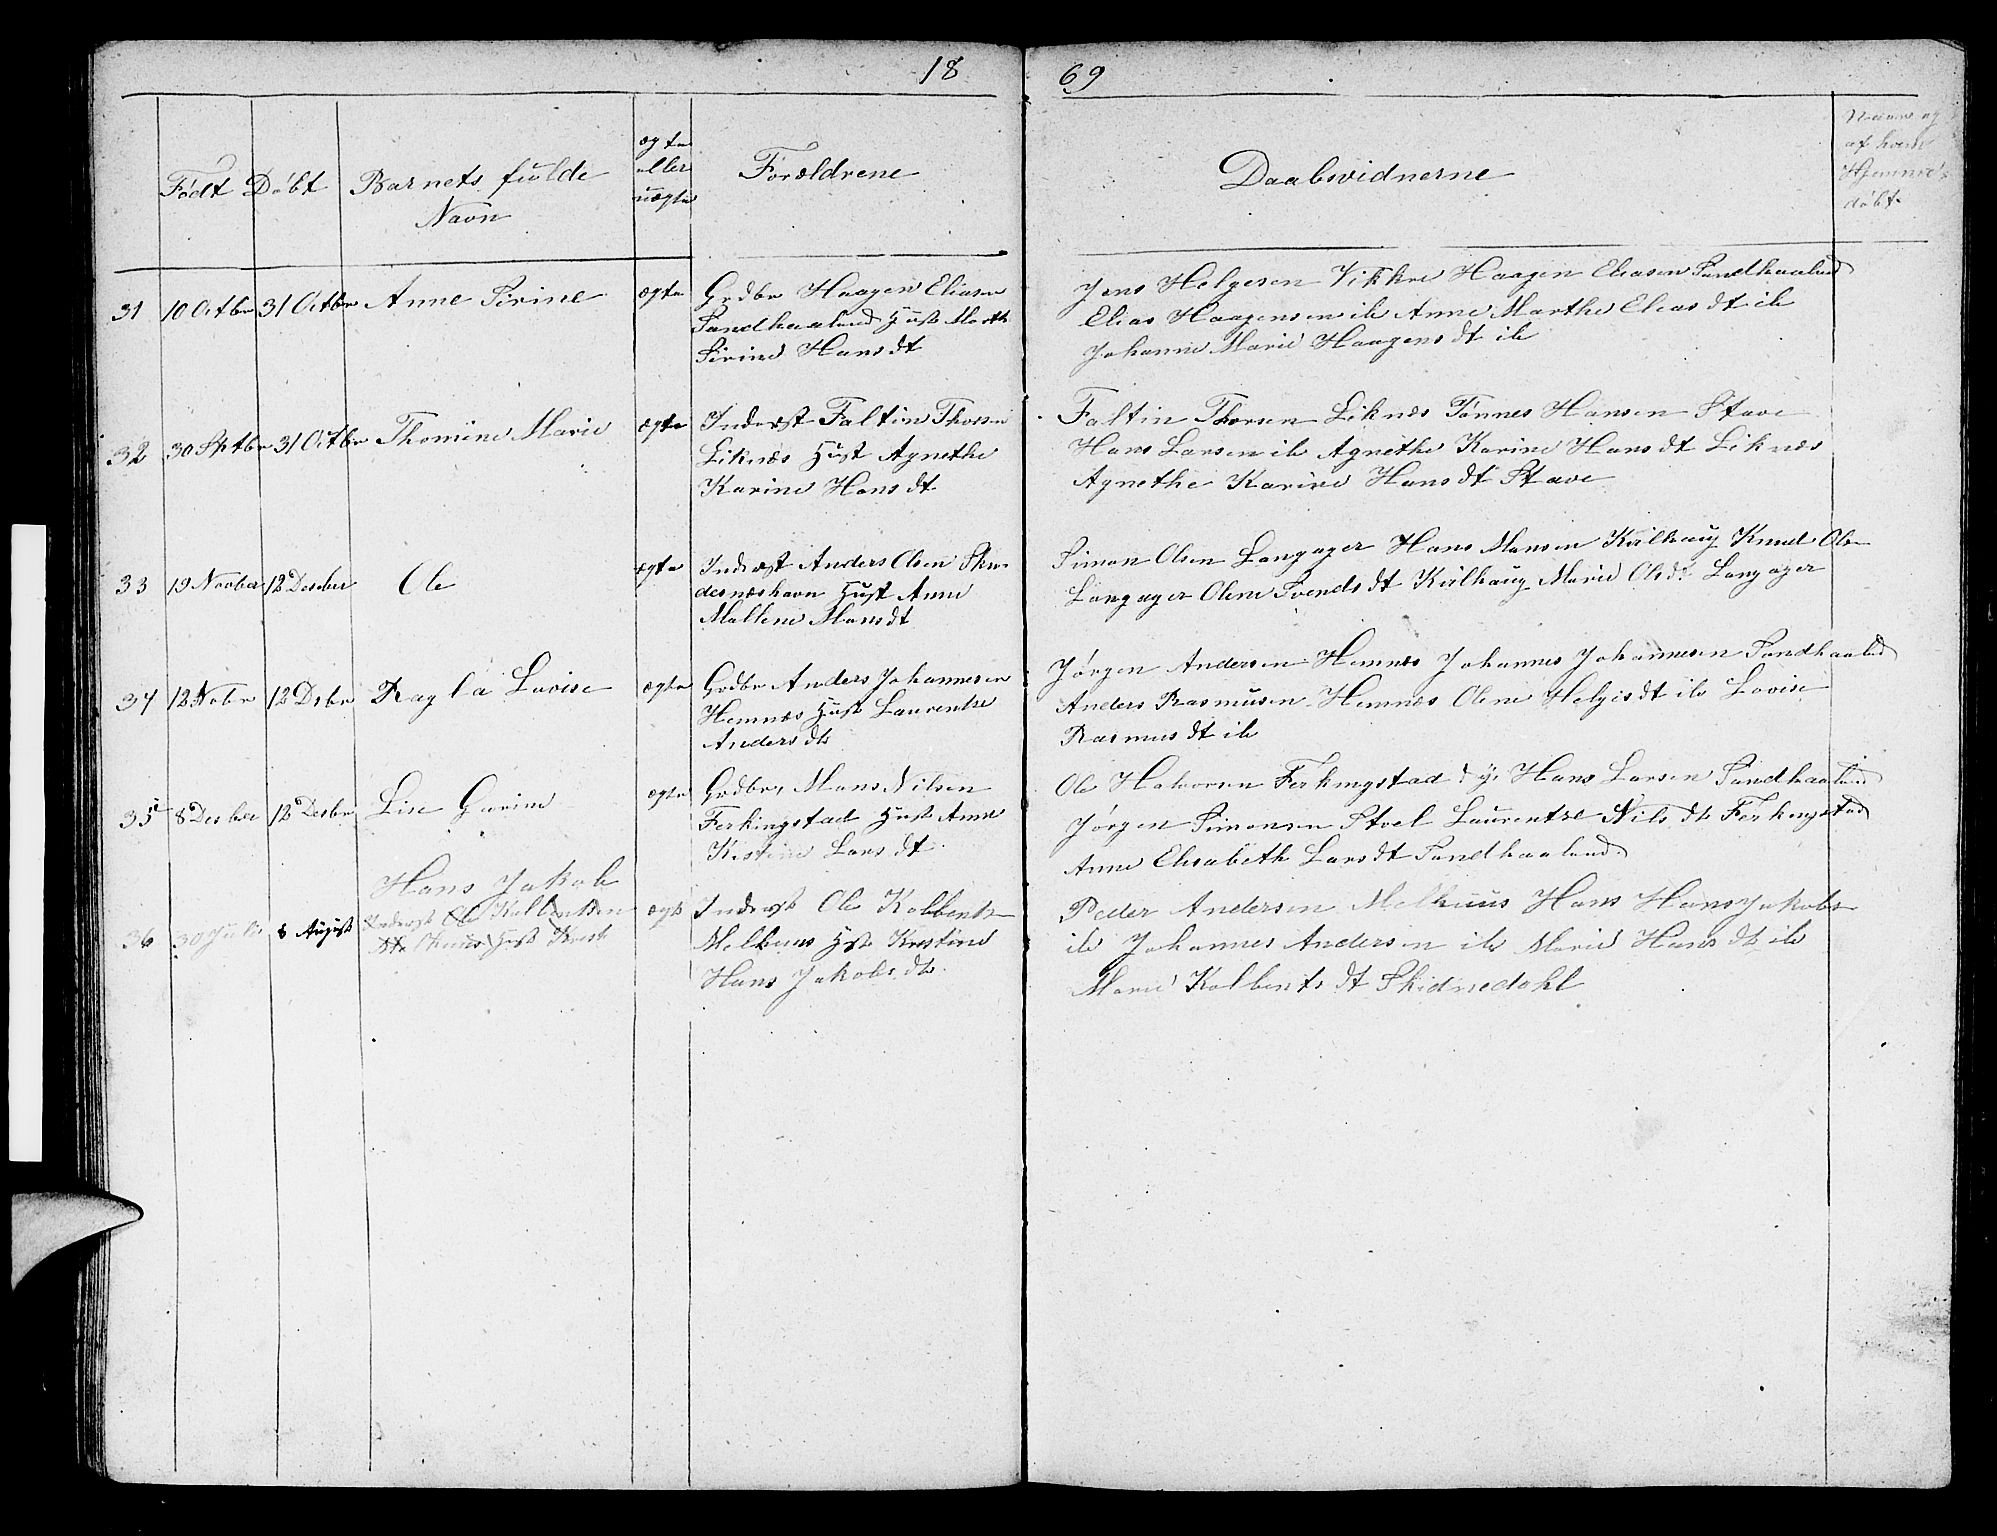 18 69
Født Døbt Barnets fulde Navn ægte eller uægte Forældrene Daabsvidnerne Naar og af hvem Hjemme døbt
31 10 Octbr 31 Octbr Anne Serine ægte Grdbr Haagen Eliasen
Sandhaaland Hust Marth
Serine Hans dt
Jens Helgesen Vikkre Haagen Eliasen Sandhaaland
Elias Haagensen ib Anne Marthe Elias dt ib
Johanne Marie Haagens dt ib
32 30 Septbr 31 Octbr Thomine Marie ægte Inderst Faltin Thorsen
Liknes Hust Agnethe
Karine Hans dt
Faltin Thorsen Liknes Tønnes Hansen Stave
Hans Larsen ib Agnethe Karine Hans dt Liknes
Agnethe Karine Hans dt Stave
33 19 Novber 12 Desber Ole ægte Inderst Anders Olsen Sku-
desneshavn Hust Anne
Mallene Mons dt
Simon Olsen Langager Hans Monsen Kirlhaug Knud Olsen
Langager Olene Svends dt Kirlhaug Marie Ols dt Langager
34 12 Nobr 12 Dsbr Ragla Lovise ægte Grdbr Anders Johannesen
Hemnes Hust Laurentse
Anders dt
Jørgen Andersen Hemnes Johannes Johannesen Sandhaaland
Anders Rasmusen Hemnes Olene Helgis dt ib Lovise
Rasmus dt ib
35 8 Desber 12 Desbr Lise Gurine ægte Grdbr Mons Nilsen
Ferkingstad Hust Anne
Kistine Lars dt
Ole Halvorsen Ferkingstad Hans Larsen Sandhaaland
Jørgen Simonsen Stoel Laurentse Nils dt Ferkingstad
Anne Elisabeth Lars dt Sandhaaland
36 30 Juli 8 August Hans Jakob
Inderst Ole Kolbentsen
Hust
ægte Inderst Ole Kolbents
Melhuus Hst Kristine
Hans Jakobs dt
Peder Andersen Melhuus Hans Hans Jakobs
ib Johannes Andersen ib Marie Hans dt ib
Marie Kolbents dt Skidnedahl